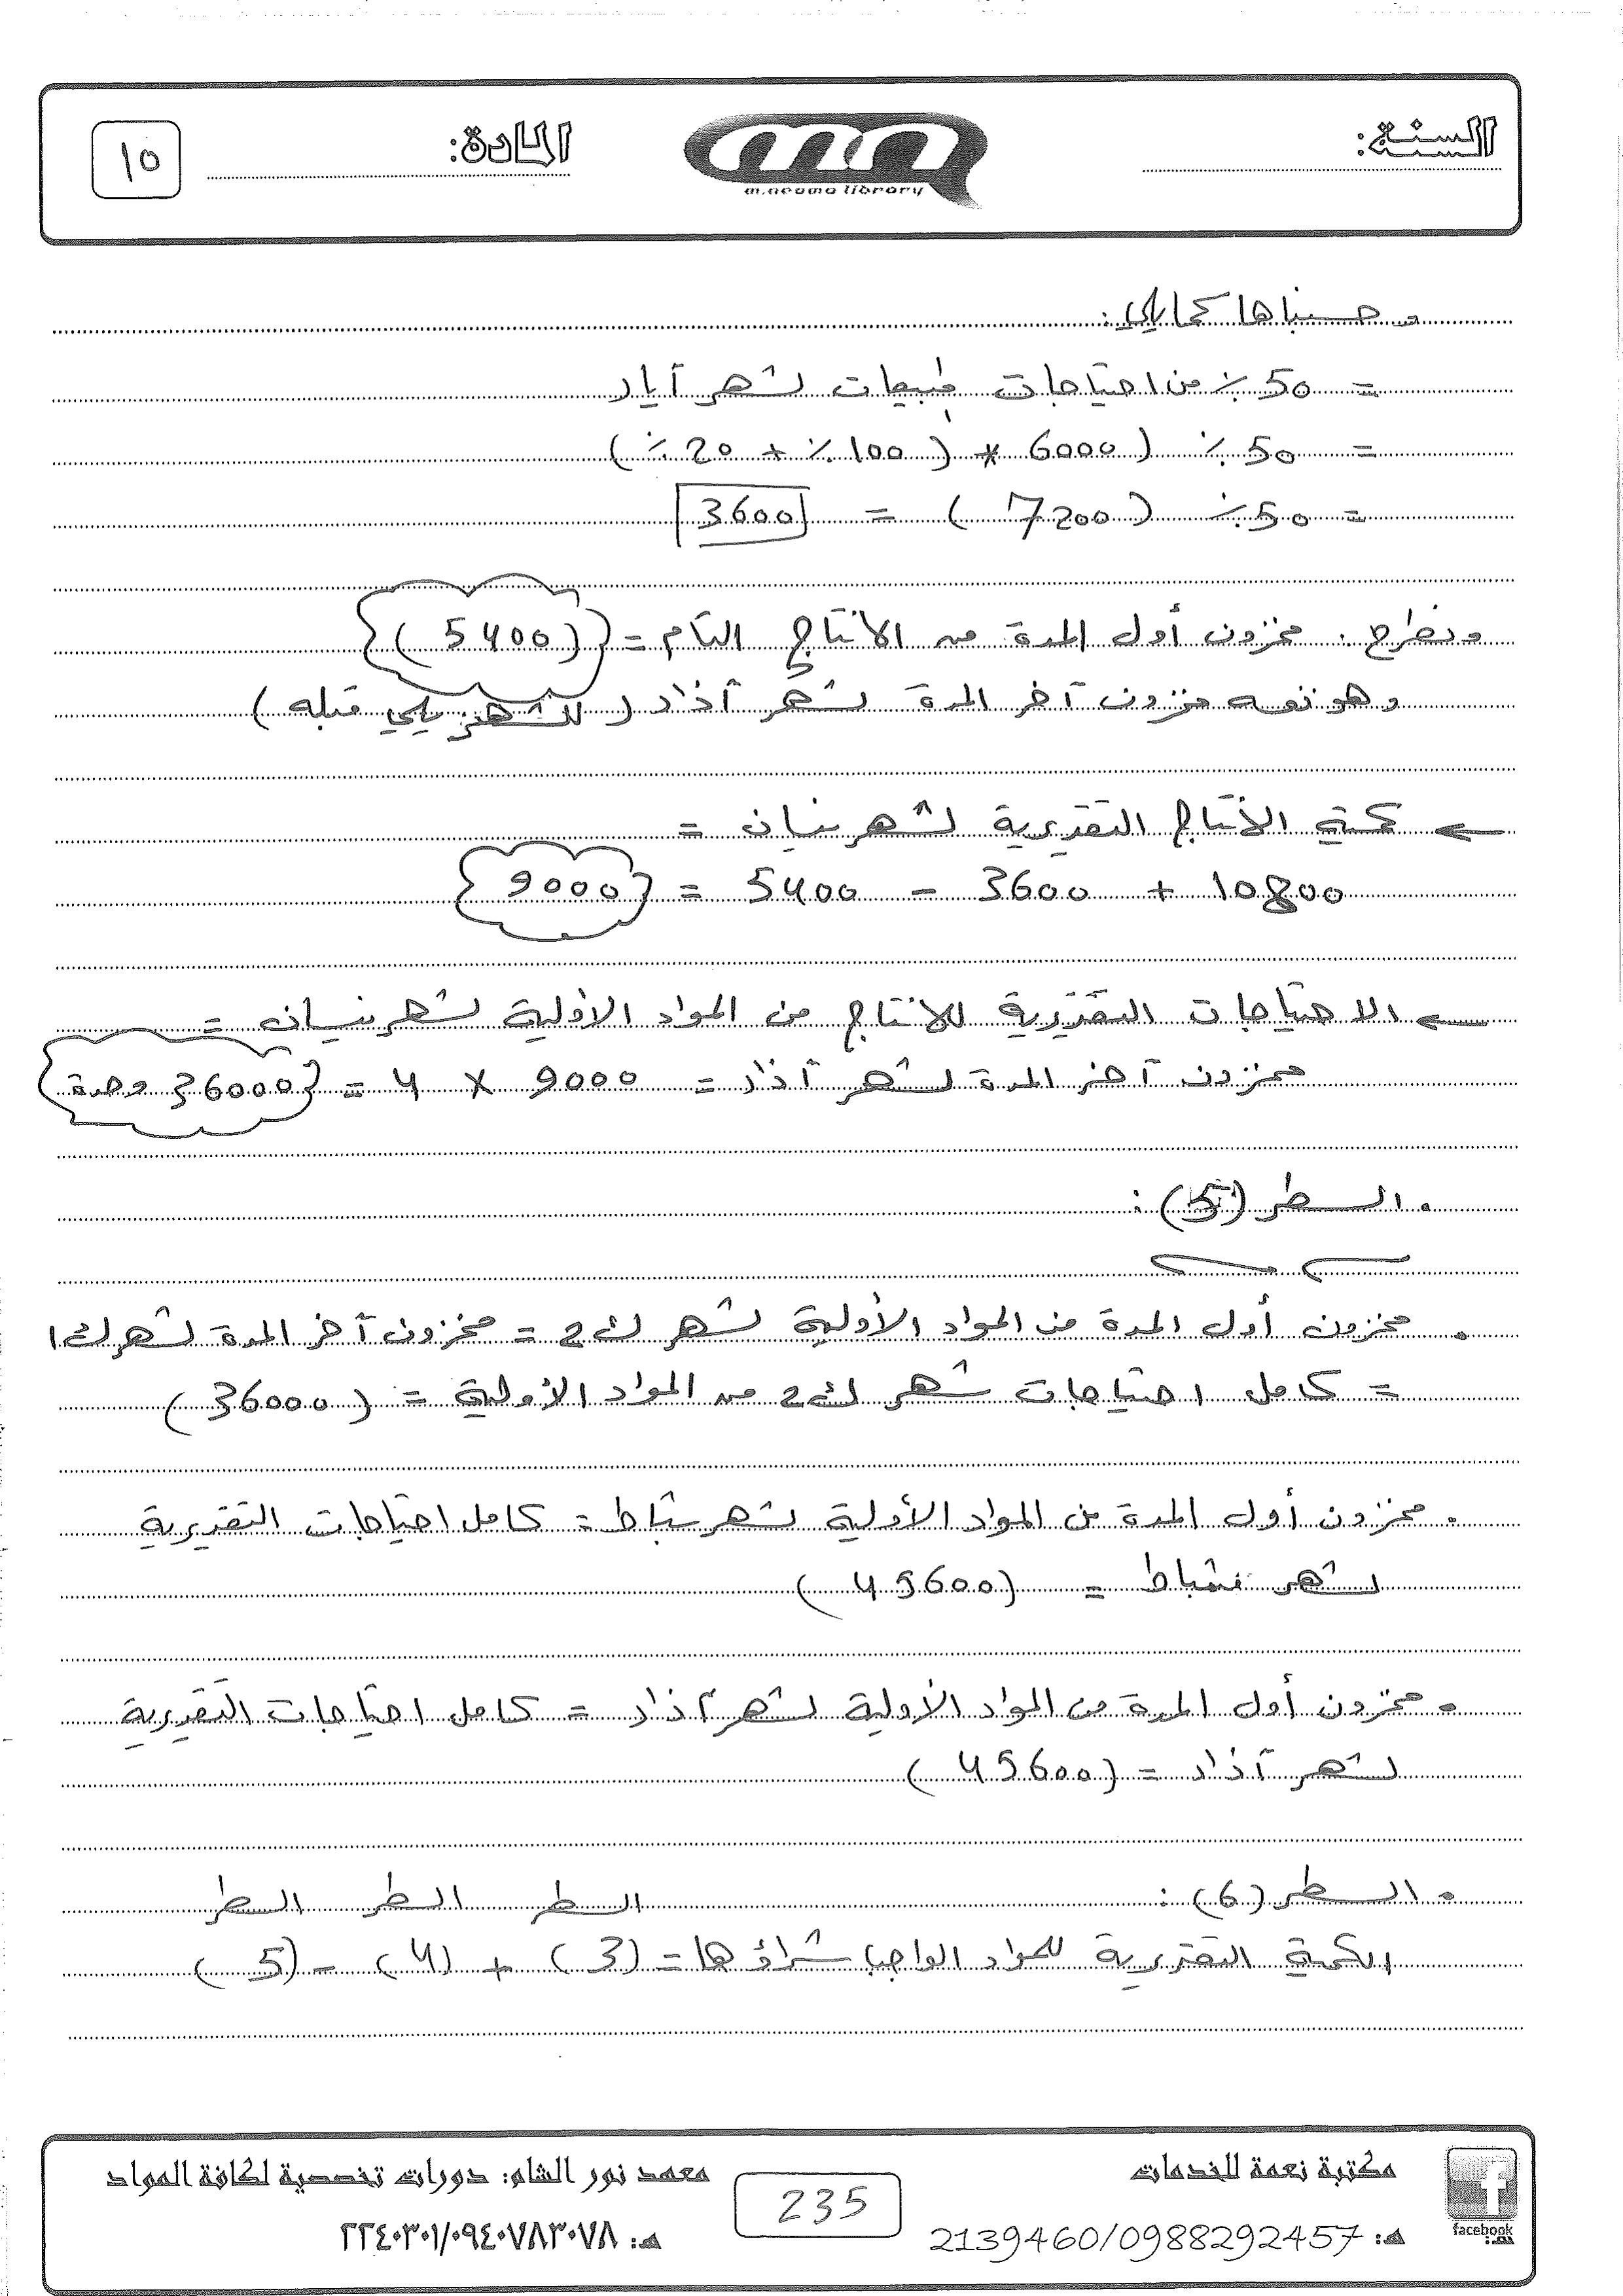 السنة:
m.neama library
المادة:
١٥
. حسبناها كمايلي:
= 50 ٪ من احتياجات مبيعات لشهر آيار
= 50 ٪ (6000 * (100 ٪ + 20 ٪)
= 50 ٪ (7200) = 3600
ونطرح: مخزون أول المدة من الانتاج التام = (5400)
وهو نفسه مخزون آخر المدة لشهر آذار (للشهر يلي قبله)
← كمية الانتاج التقديرية لشهر نيسان =
10800 + 3600 - 5400 = 9000
← الاحتياجات التقديرية للانتاج من المواد الأولية لشهر نيسان =
مخزون آخر المدة لشهر آذار = 9000 × 4 = 36000 وحدة
. السطر (5):
. مخزون أول المدة من المواد الأولية لشهر ك2 = مخزون آخر المدة لشهر ك1
= كامل احتياجات شهر ك2 من المواد الأولية = (36000)
. مخزون أول المدة من المواد الأولية لشهر شباط = كامل احتياجات التقديرية
لشهر شباط = (45600)
. مخزون أول المدة من المواد الأولية لشهر آذار = كامل احتياجات التقديرية
لشهر آذار = (45600)
. السطر (6): السطر السطر السطر
الكمية التقديرية للمواد الواجب شراؤها = (3) + (4) - (5)
مكتبة نعمة للخدمات
هـ: 2139460/0988292457
facebook
235
معهد نور الشام: دورات تخصصية لكافة المواد
هـ: ٢٢٤٠٣٠١/٠٩٤٠٧٨٣٠٧٨